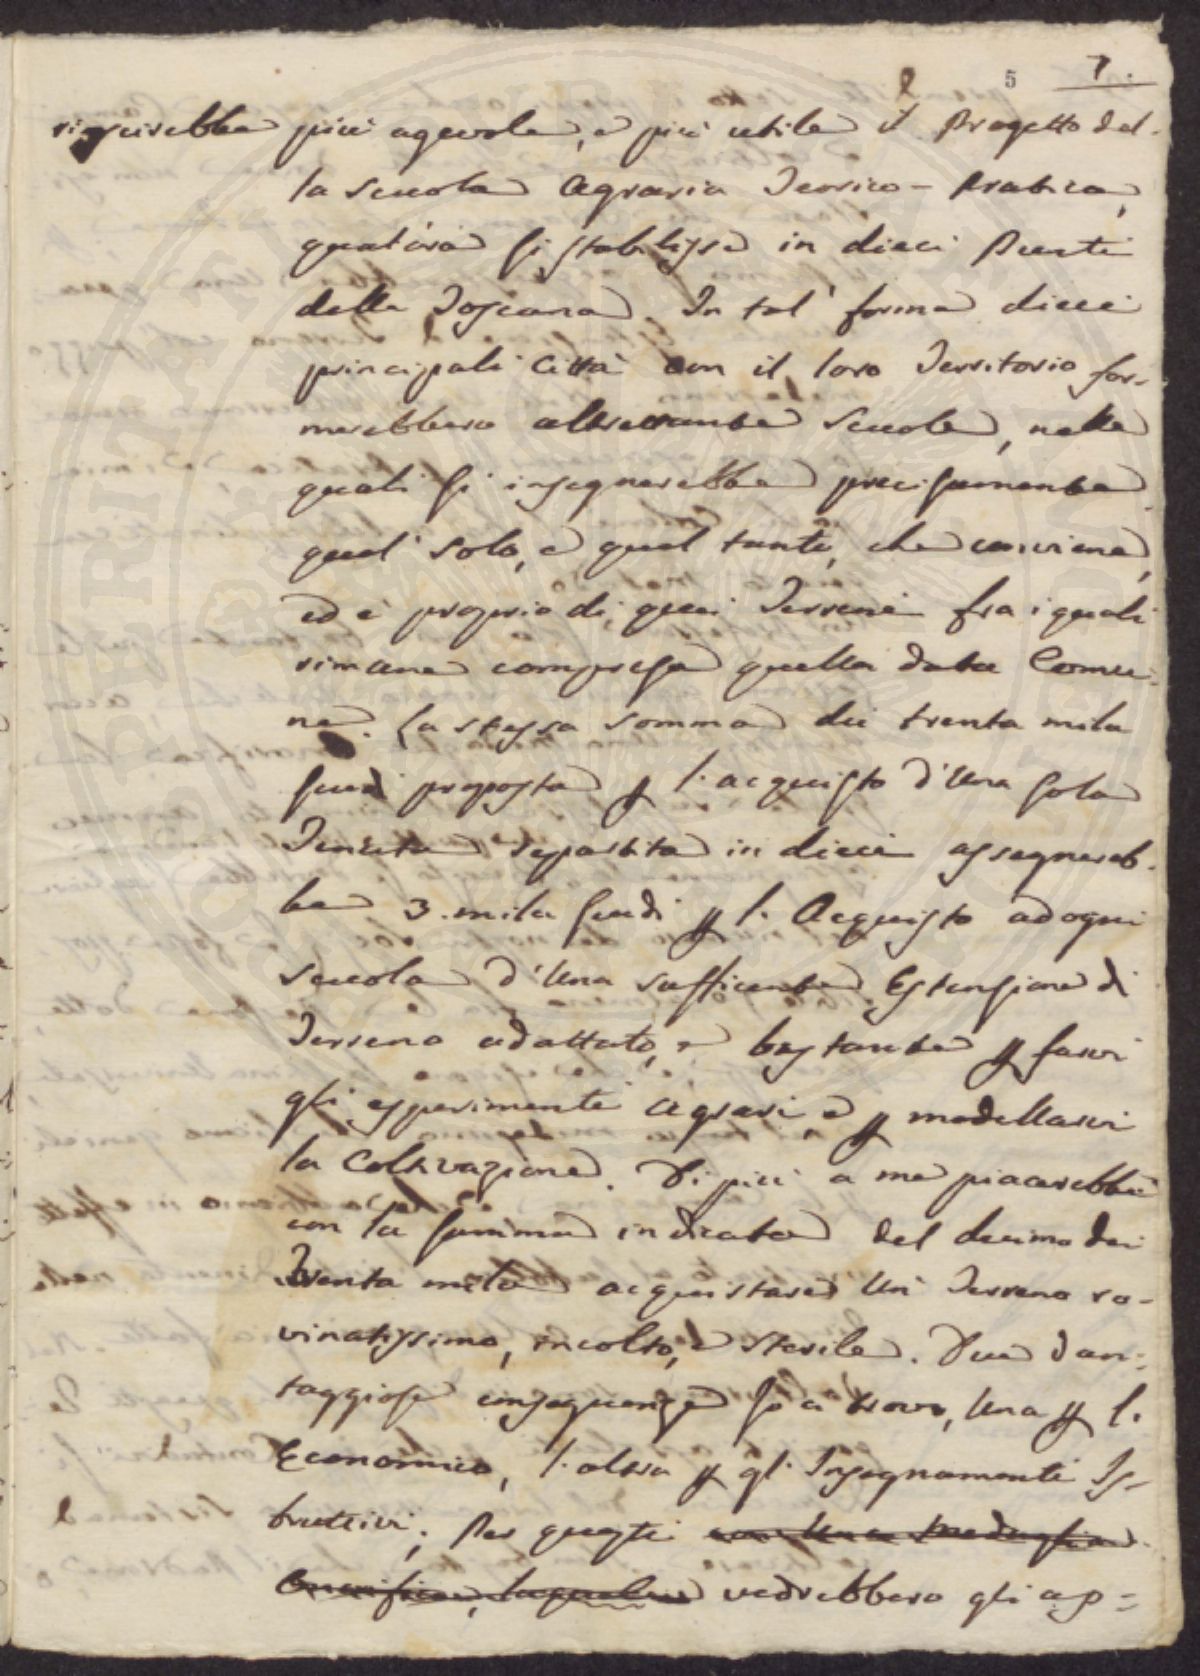 5 7.
riuscirebbe più agevole, e più utile il Progetto del-
la scuola Agraria Teorico-Pratica,
qualora si stabilisse in dieci Punti
della Toscana. In tal' forma dieci
principali Città con il loro Territorio for-
merebbero altrettante scuole, nelle
quali si insegnerebbe precisamente
quel' solo, e quel tanto, che conviene,
ed è proprio di quei Terreni fra i quali
rimane compresa quella data Comu-
ne. La stessa somma dei trenta mila
scudi proposta p l'acquisto d'una sola
Tenuta repartita in dieci assegnereb-
be 3. mila scudi p l'Acquisto ad ogni
scuola d'Una sufficente Estensione di
Terreno adattato, e bastante p farvi
gli esperimenti agrari, e p modellarvi
la Coltivazione. Di più a me piacerebbe
con la somma indicata del decimo dei
Trenta mila acquistare Un' Terreno ro-
vinatissimo, incolto, e sterile. Due van-
taggiose conseguenze io ci trovo, Una p l'
Economico, l'altra p gl' Insegnamenti Is-
truttivi. Per questi con Una Medaglia
Onorifica, laquale vedrebbero gli ap=